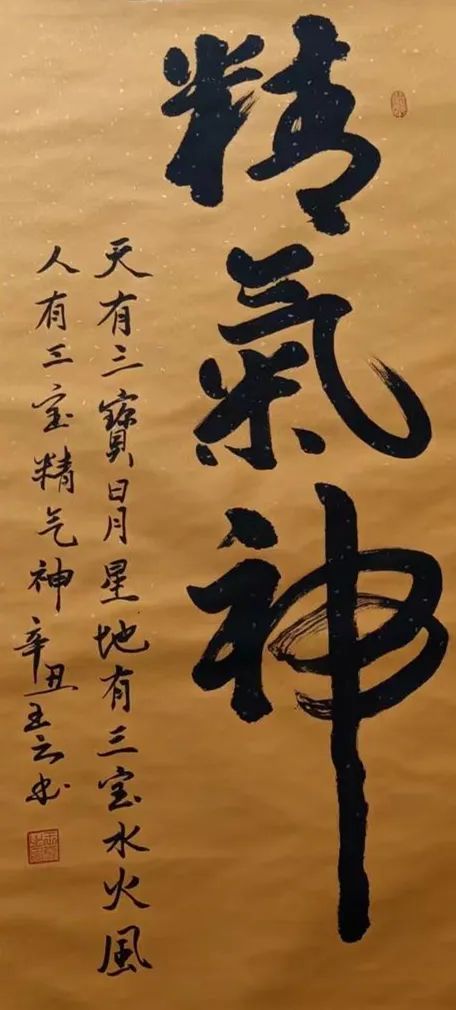 精氣神
天有三寶日月星地有三宝水火風
人有三宝精气神辛丑王云书